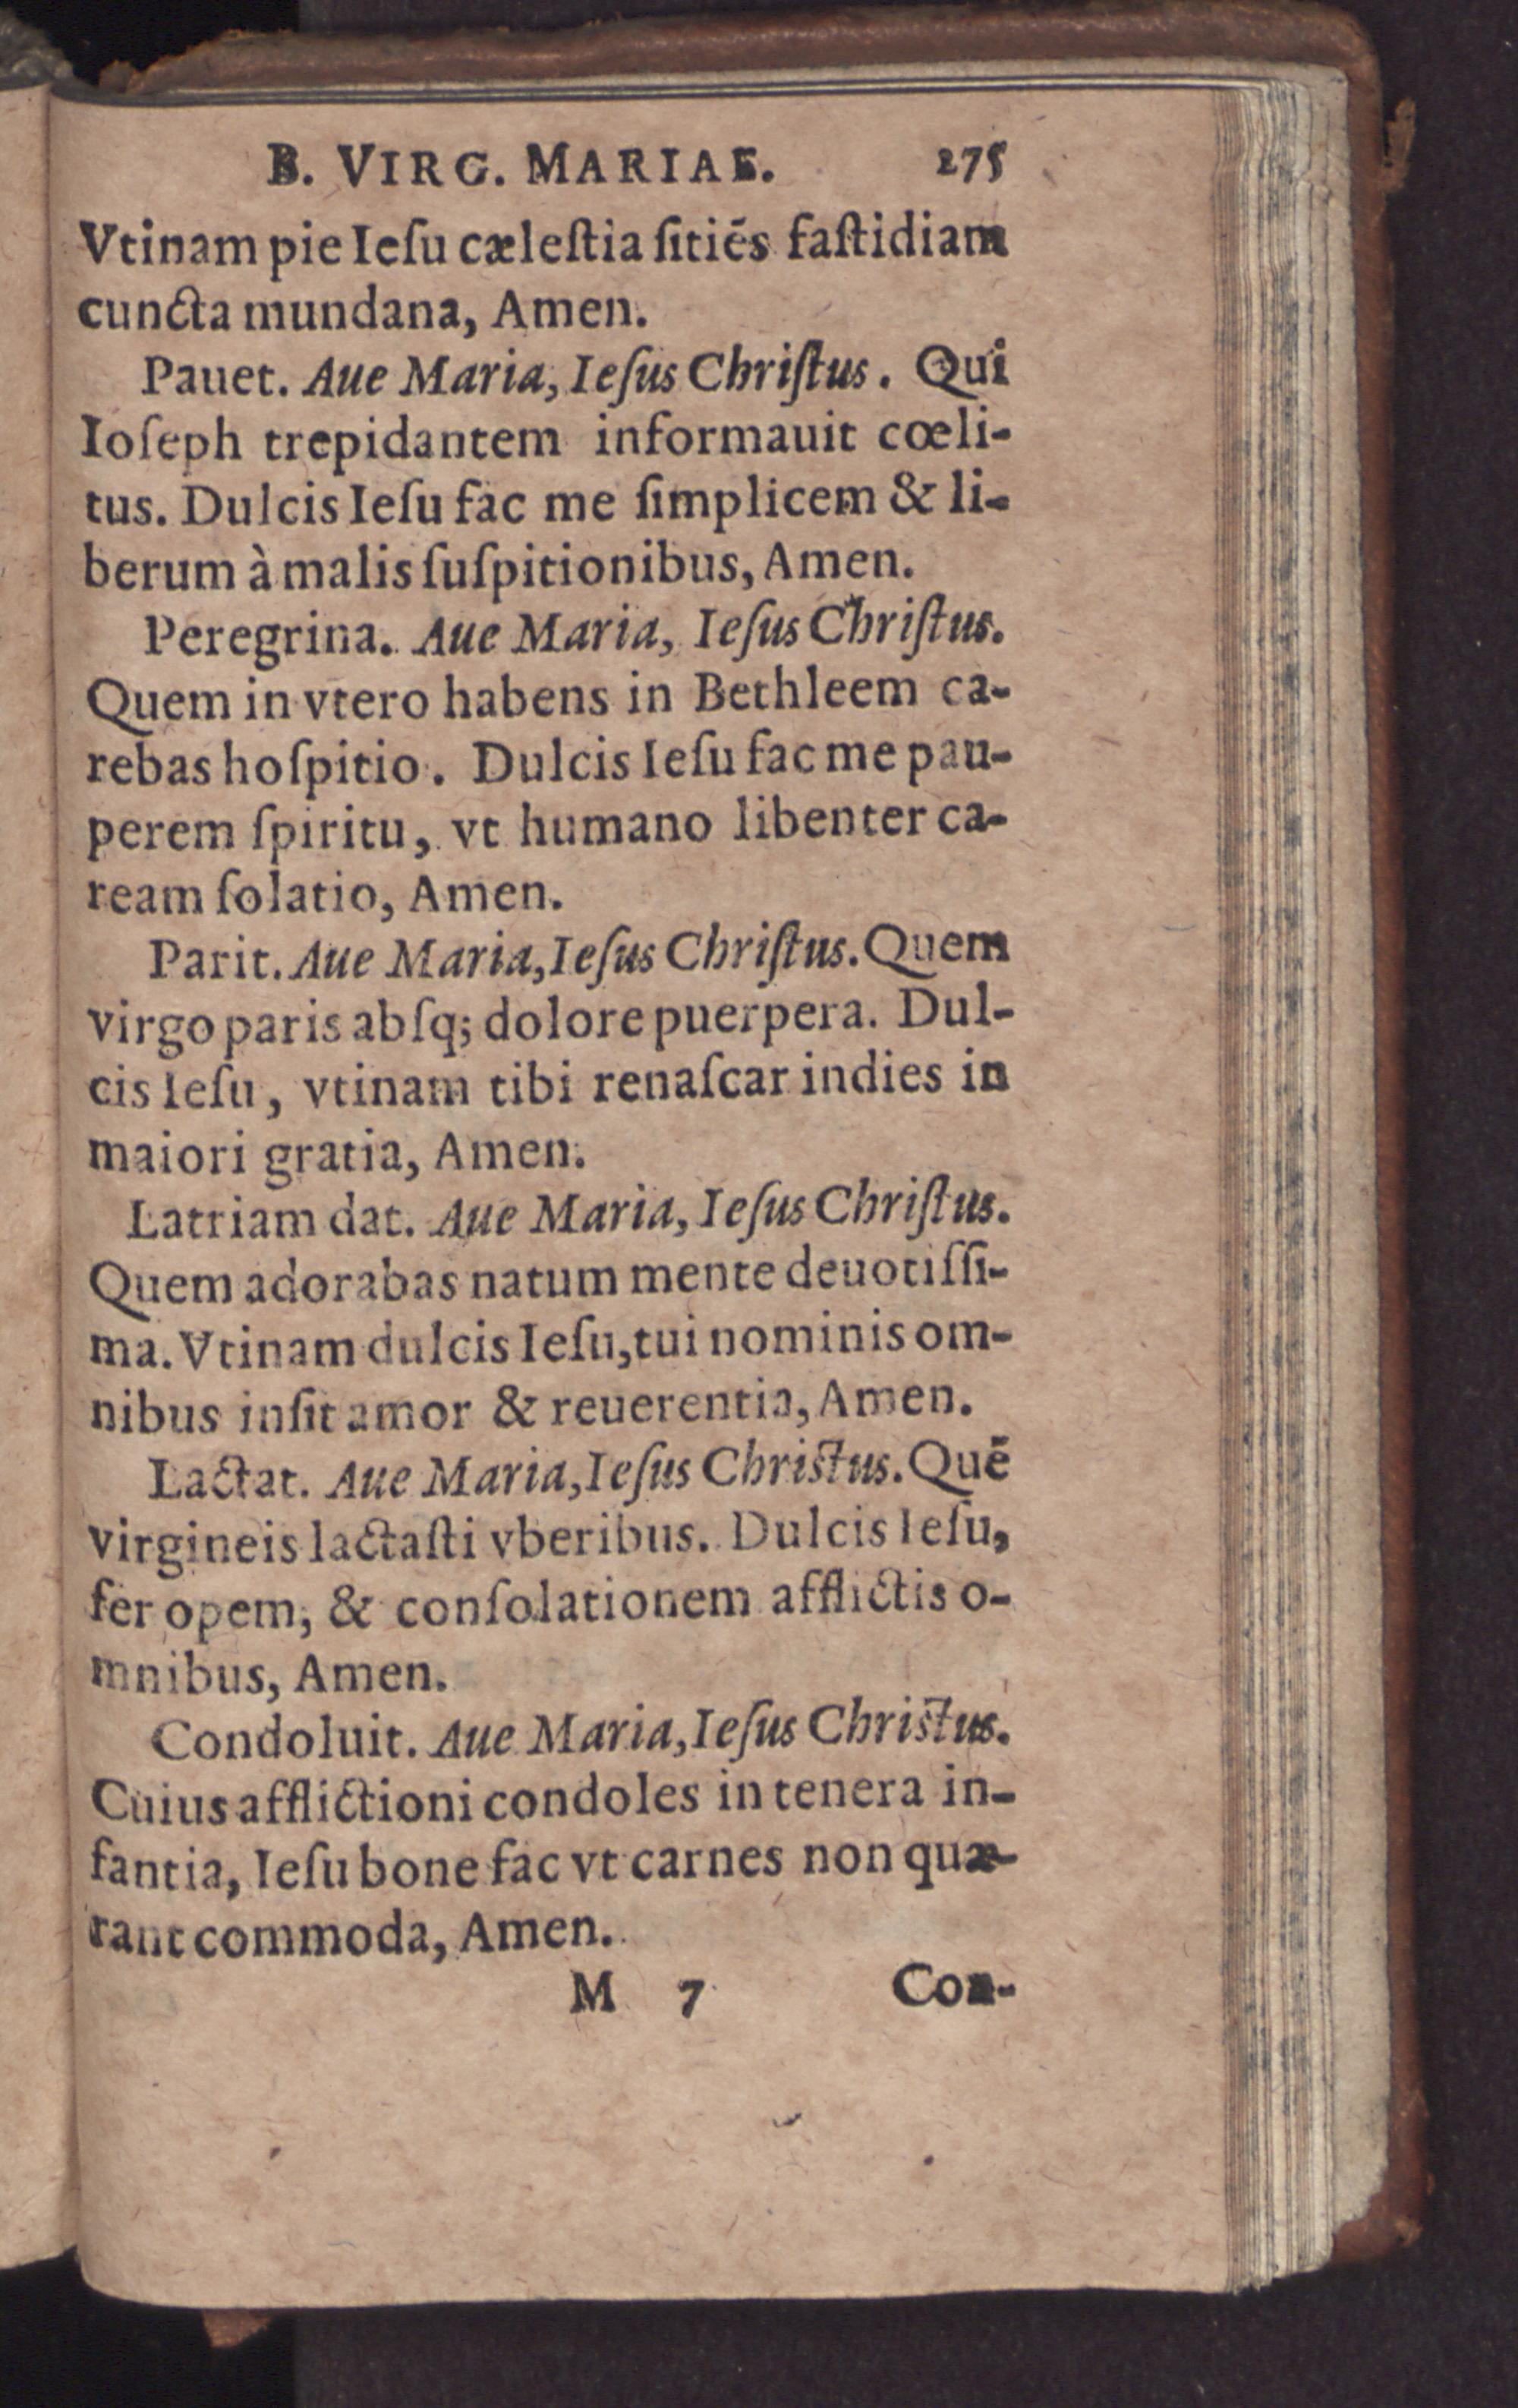 B. VIRG. MARIAE. 275
Vtinam pie Ieſu cæleſtia ſitiēs faſtidiam
cuncta mundana, Amen.
Pauet. Aue Maria, Ieſus Chriſtus. Qui
Ioſeph trepidantem informauit cœli-
tus. Dulcis Ieſu fac me ſimplicem & li-
berum à malis ſuſpitionibus, Amen.
Peregrina. Aue Maria, Ieſus Chriſtus.
Quem in vtero habens in Bethleem ca-
rebas hoſpitio. Dulcis Ieſu fac me pau-
perem ſpiritu, vt humano libenter ca-
ream ſolatio, Amen.
Parit. Aue Maria, Ieſus Chriſtus. Quem
virgo paris abſq; dolore puerpera. Dul-
cis Ieſu, vtinam tibi renaſcar indies in
maiori gratia, Amen.
Latriam dat. Aue Maria, Ieſus Chriſtus.
Quem adorabas natum mente deuotiſſi-
ma. Vtinam dulcis Ieſu, tui nominis om-
nibus inſit amor & reuerentia, Amen.
Lactat. Aue Maria, Ieſus Chriſtus. Quē
virgineis lactaſti vberibus. Dulcis Ieſu,
fer opem, & conſolationem afflictis o-
mnibus, Amen.
Condoluit. Aue Maria, Ieſus Chriſtus.
Cuius afflictioni condoles in tenera in-
fantia, Ieſu bone fac vt carnes non quæ-
rant commoda, Amen.
M 7 Con-